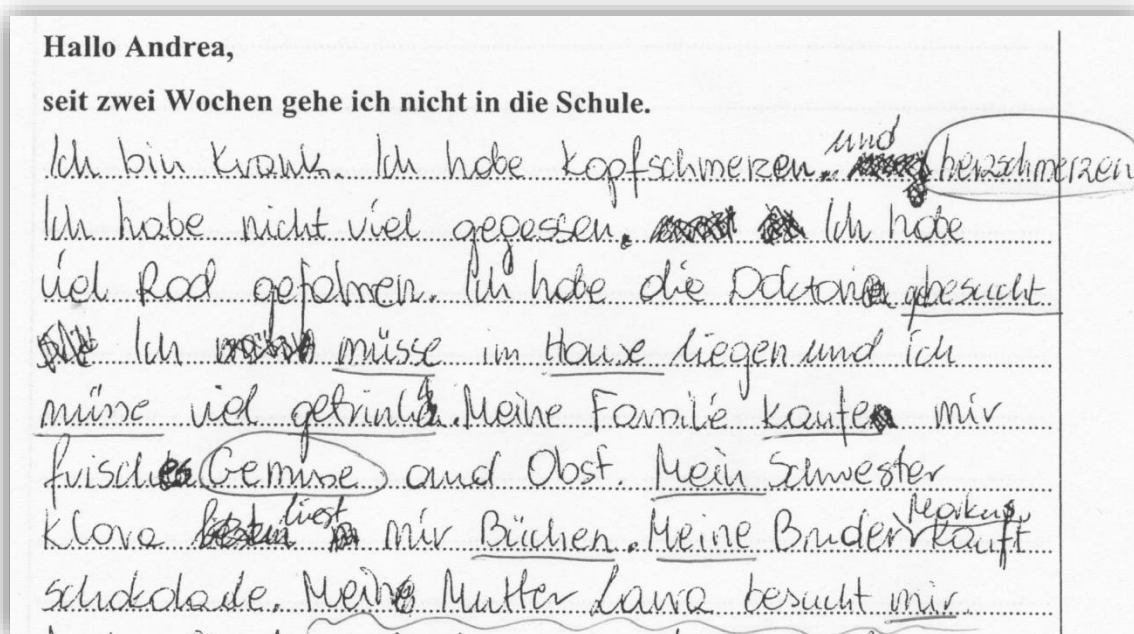 Hallo Andrea,
seit zwei Wochen gehe ich nicht in die Schule.
Ich bin Krank. Ich habe Kopfschmerzen und herzschmerzen
Ich habe nicht viel gegessen. Ich habe
viel Rad gefahren. Ich habe die Doctorin gebesucht
Ich müsse im Hause liegen und ich
müsse viel getrink. Meine Familie kaufe mir
frisch Gemüse and Obst. Mein Schwester
Klara liest mir Büchen. Meine Bruder Markus kauft
schokolade. Meine Mutter Laura besucht mir